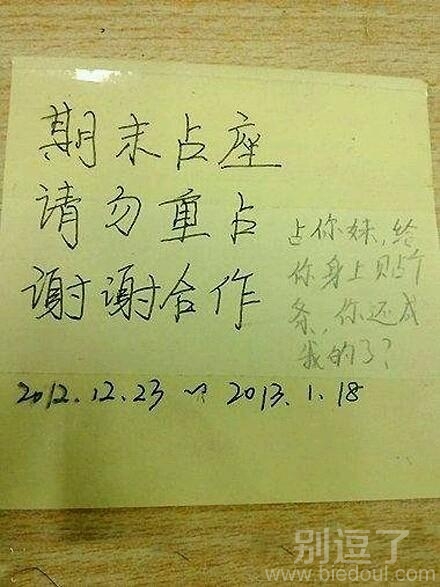 期末占座
请勿重占
谢谢合作
占你妹,给
你身上贴个
条,你还成
我的了?
2012.12.23 ~ 2013.1.18
别逗了
www.biedoul.com